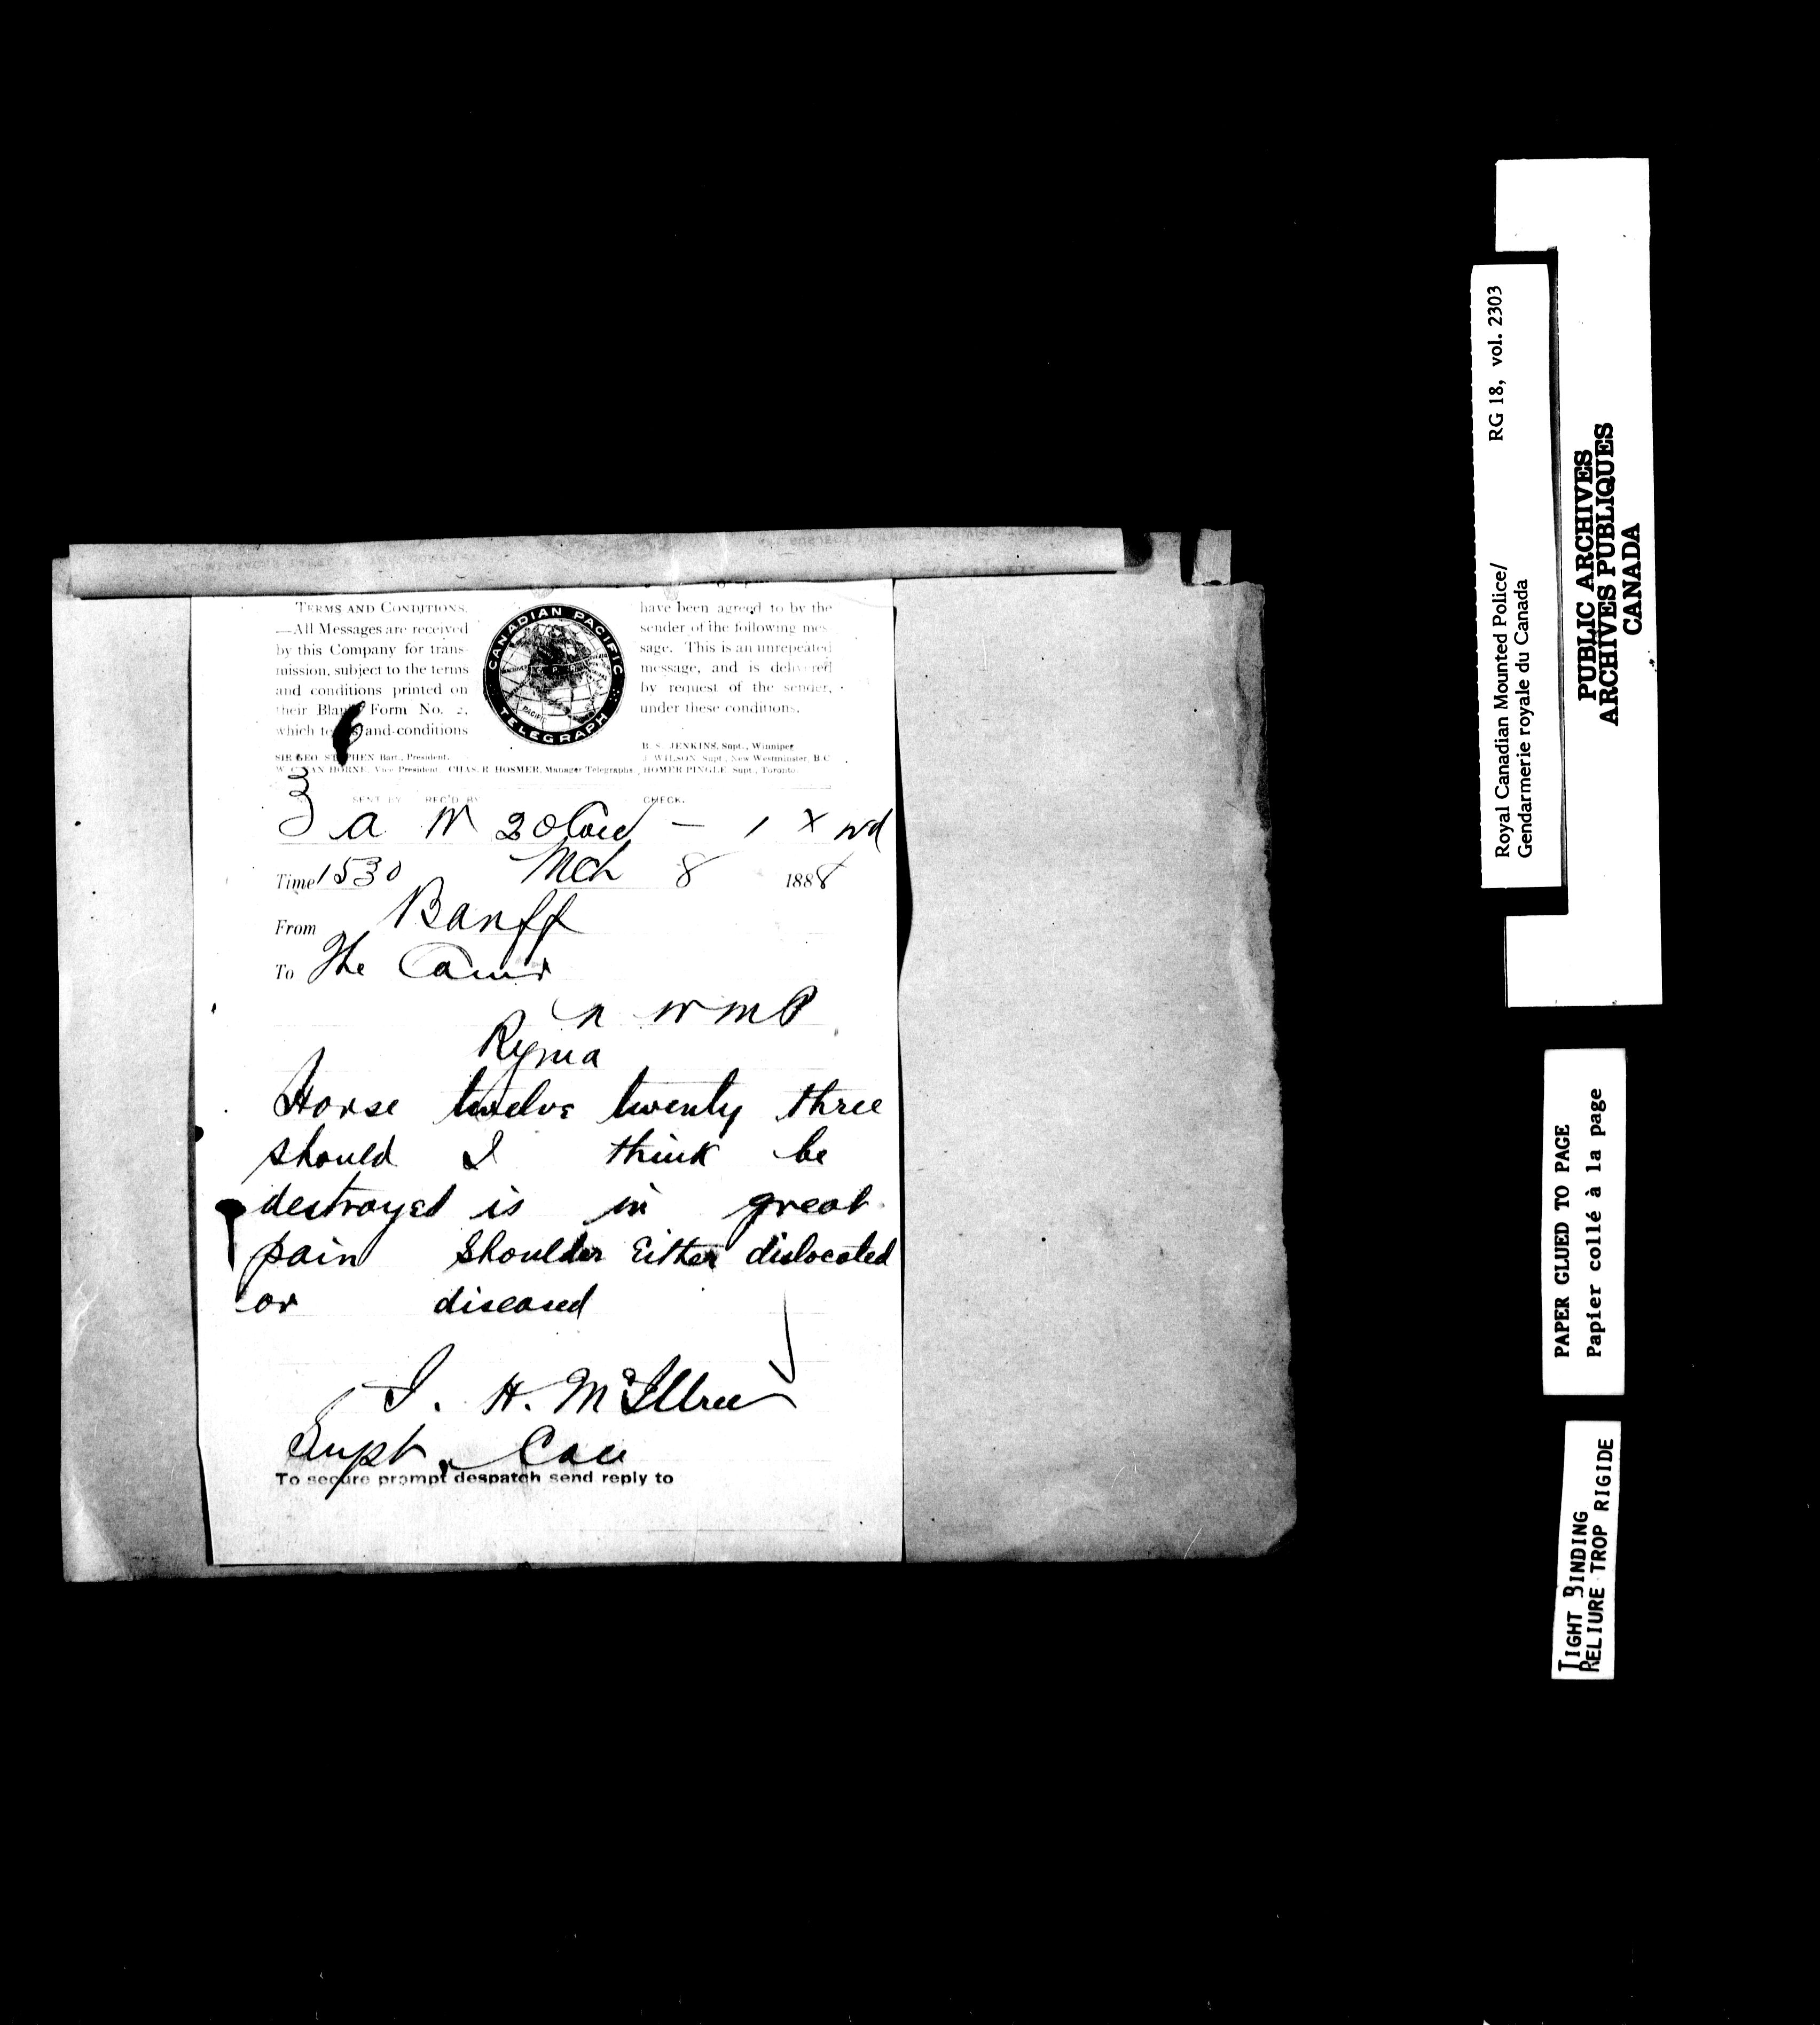 TERMS AND CONDITIONS.
—All Messages are received
by this Company for trans-
mission, subject to the terms
and conditions printed on
their Blank Form No. 2,
which and conditions
CANADIAN PACIFIC
TELEGRAPH
have been agreed to by the
sender of the following mes
sage. This is an unrepeated
message, and is delivered
by request of the sender,
under these conditions.
SIR GEO STEPHEN Bart., President.
W C VAN HORNE, Vice President. CHAS. R HOSMER, Manager Telegraphs
B. S. JENKINS, Supt., Winnipeg
J. WILSON Supt., New Westminster, B.C
HOMER PINGLE Supt., Toronto.
SENT BY REC'D BY CHECK.
a
Time 1530 Mch 8 1888
From Banff
To The
N W M P
Regina
Horse twelve twenty three
should I think be
destroyed is in great
pain Shoulder Either dislocated
or diseased
J. H. McIllree
Supt.
To secure prompt despatch send reply to
Royal Canadian Mounted Police/ RG 18, vol. 2303
Gendarmerie royale du Canada
PUBLIC ARCHIVES
ARCHIVES PUBLIQUES
CANADA
PAPER GLUED TO PAGE
Papier collé à la page
TIGHT BINDING
RELIURE TROP RIGIDE